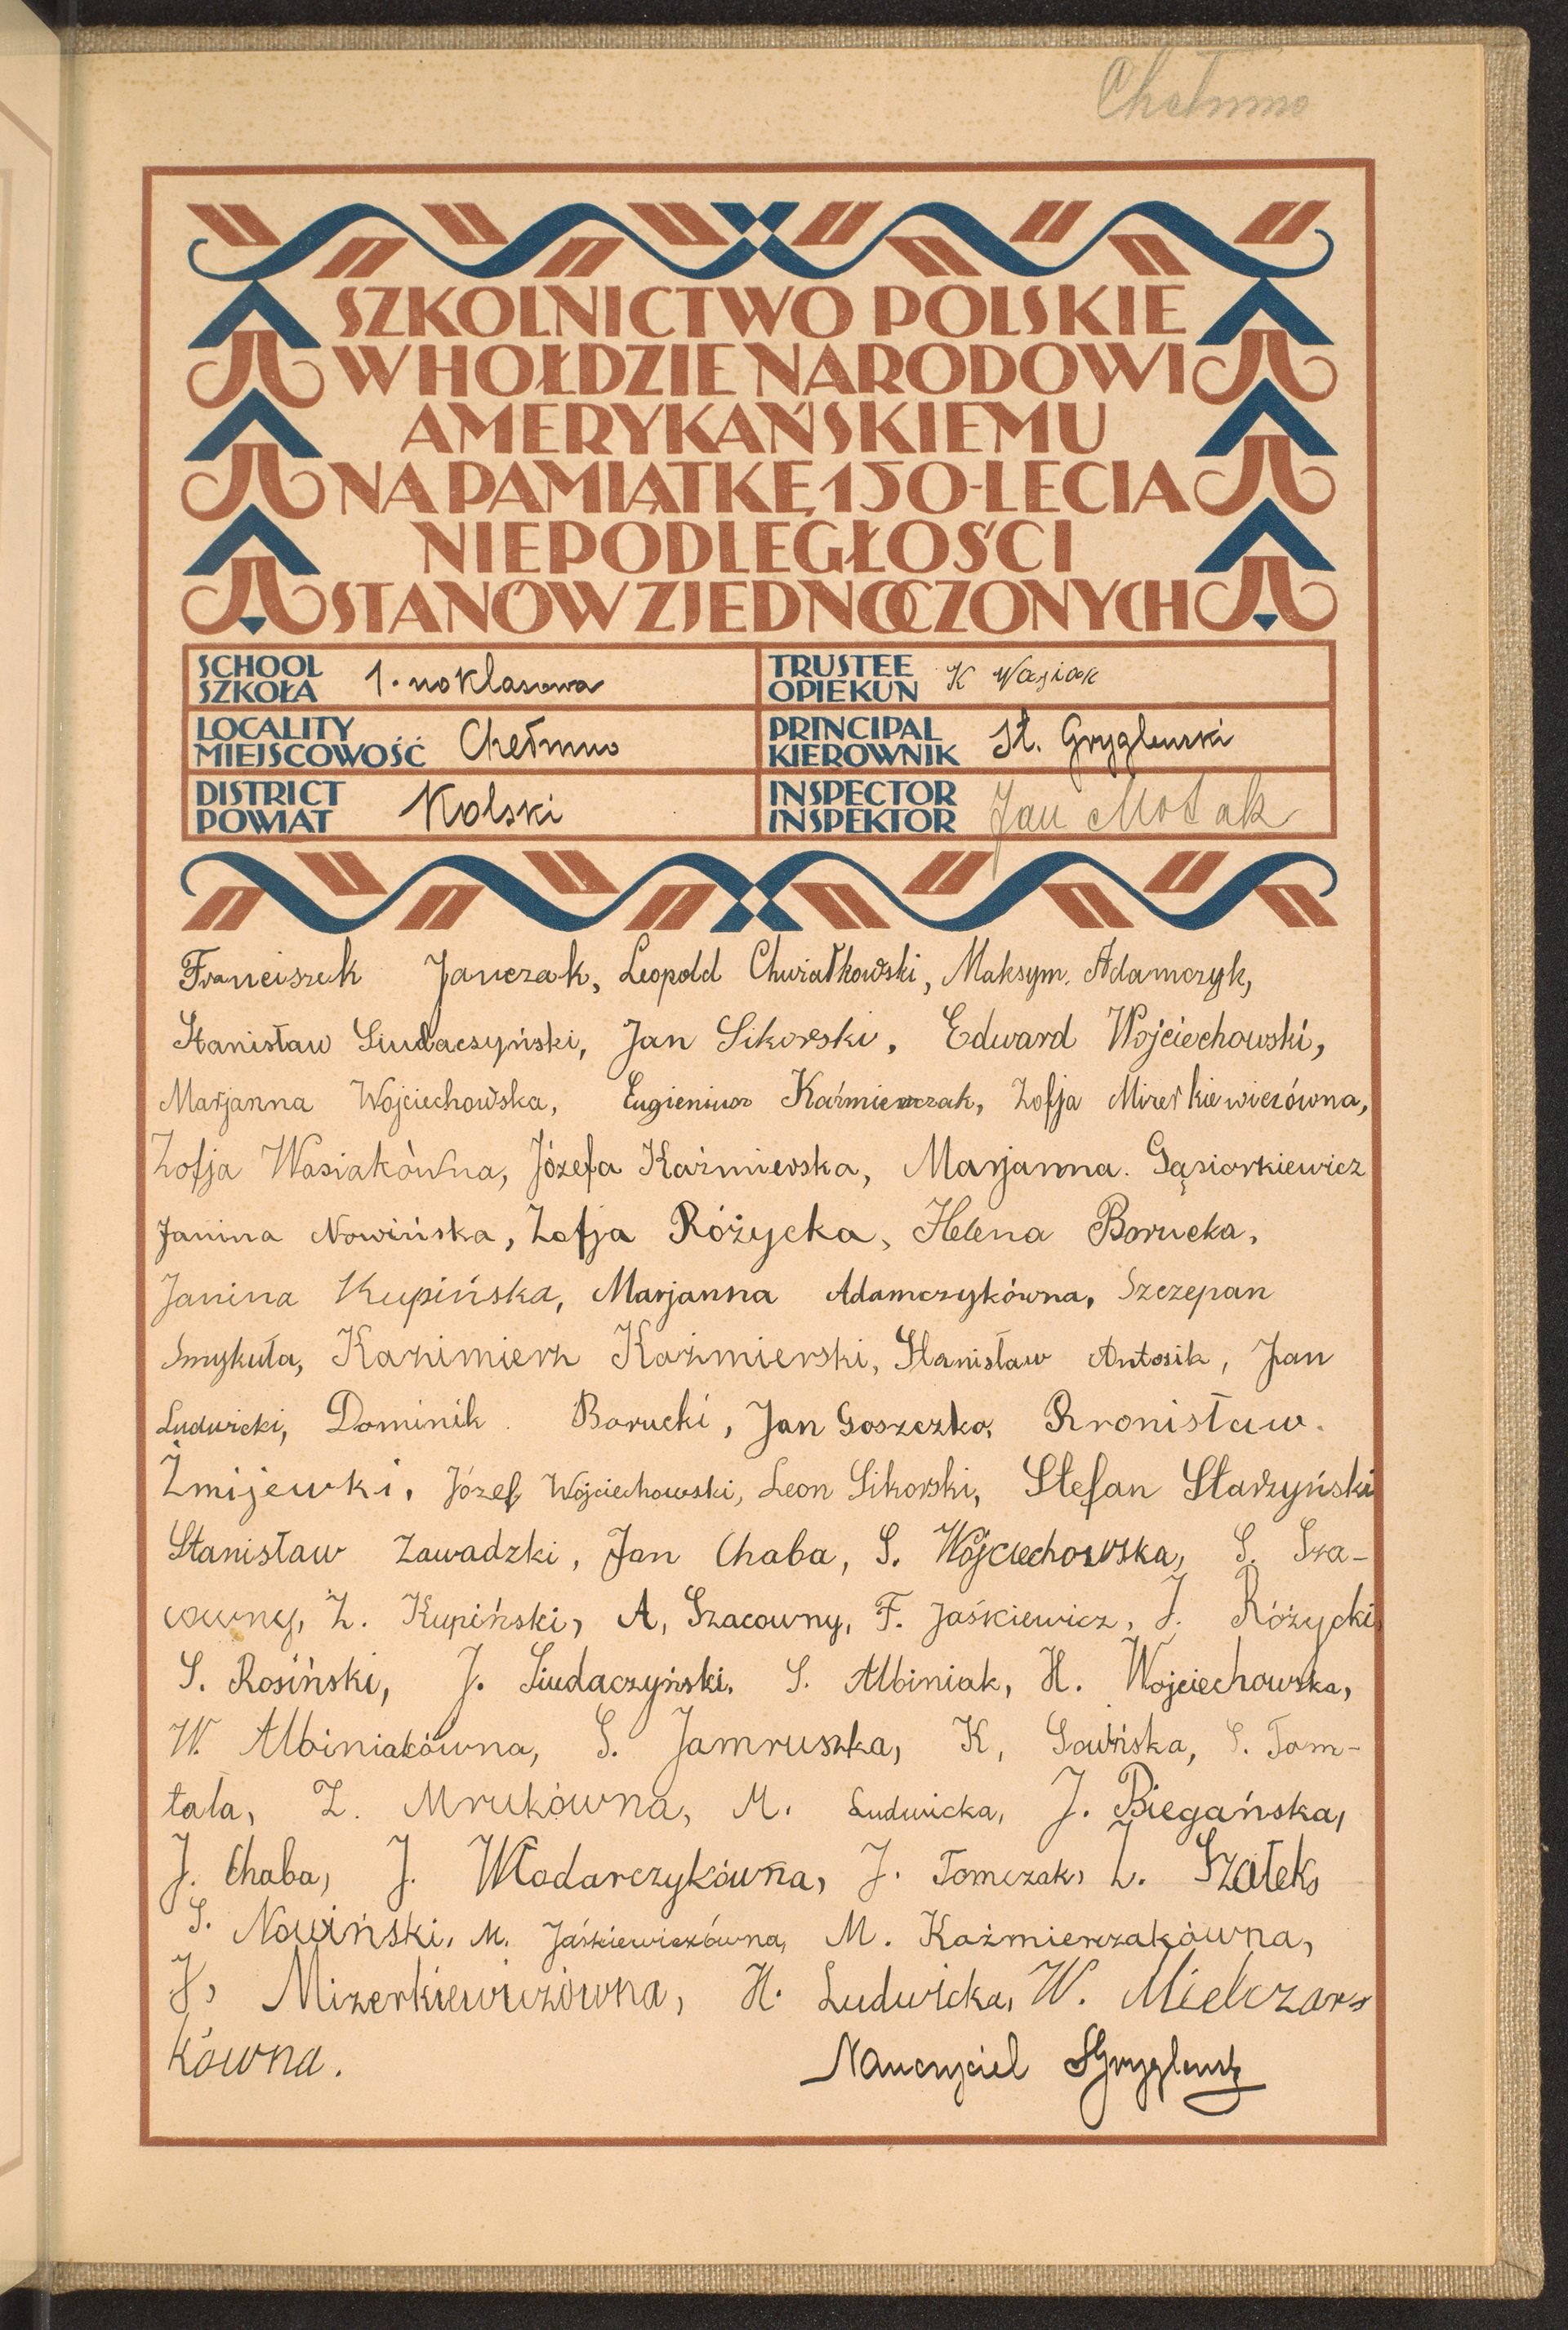 Chełmno
SZKOLNICTWO POLSKIE
W HOŁDZIE NARODOWI
AMERYKAŃSKIEMU
NA PAMIĄTKĘ 150-LECIA
NIEPODLEGŁOŚCI
STANÓW ZJEDNOCZONYCH
SCHOOL
SZKOŁA 1-no klasowa
TRUSTEE
OPIEKUN K Wasiak
LOCALITY
MIEJSCOWOŚĆ Chełmno
PRINCIPAL
KIEROWNIK St. Gryglewski
DISTRICT
POWIAT Kolski
INSPECTOR
INSPEKTOR Jan
Franciszek Janczak, Leopold Chwiałkowski, Maksym. Adamczyk,
Stanisław Siudaczyński, Jan Sikorski, Edward Wojciechowski,
Marjanna Wojciechowska, Eugieniusz Kaźmierczak, Zofja Mizerkiewiczówna,
Zofja Wasiakówna, Józefa Kaźmierska, Marjanna. Gąsiorkiewicz
Janina Nowińska, Zofja Różycka, Helena Borucka,
Janina Kupińska, Marjanna Adamczykówna, Szczepan
Smykuła, Kazimierz Kaźmierski, Stanisław Antosik, Jan
Ludwicki, Dominik Borucki, Jan Goszczko, Bronisław.
Żmijewki, Józef Wojciechowski, Leon Sikorski, Stefan Starzyński
Stanisław Zawadzki, Jan Chaba, S. Wojciechowska, S. Sza-
cowny, Z. Kupiński, A, Szacowny, F. Jaśkiewicz, J. Różycki,
S. Rosiński, J. Siudaczyński. S. Albiniak, H. Wojciechowska,
W. Albiniakówna, S. Jamruszka, K, Gowińska, S. Tom-
tala, Z. Mrukówna, M. Ludwicka, J. Biegańska,
J. Chaba, J. Włodarczykówna, J. Tomczak, L. Szałek,
S. Nowiński, M. Jaśkiewiczówna, M. Kaźmierczakówna,
J, Mizerkiewiczówna, H. Ludwicka, W. Mielczar-
kówna. Nauczyciel SGryglewski